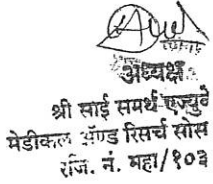 अध्यक्ष
श्री साई समर्थ एज्युवे
मेडीकल ॲण्ड रिसर्च सोस
रजि. नं. महा/१०३